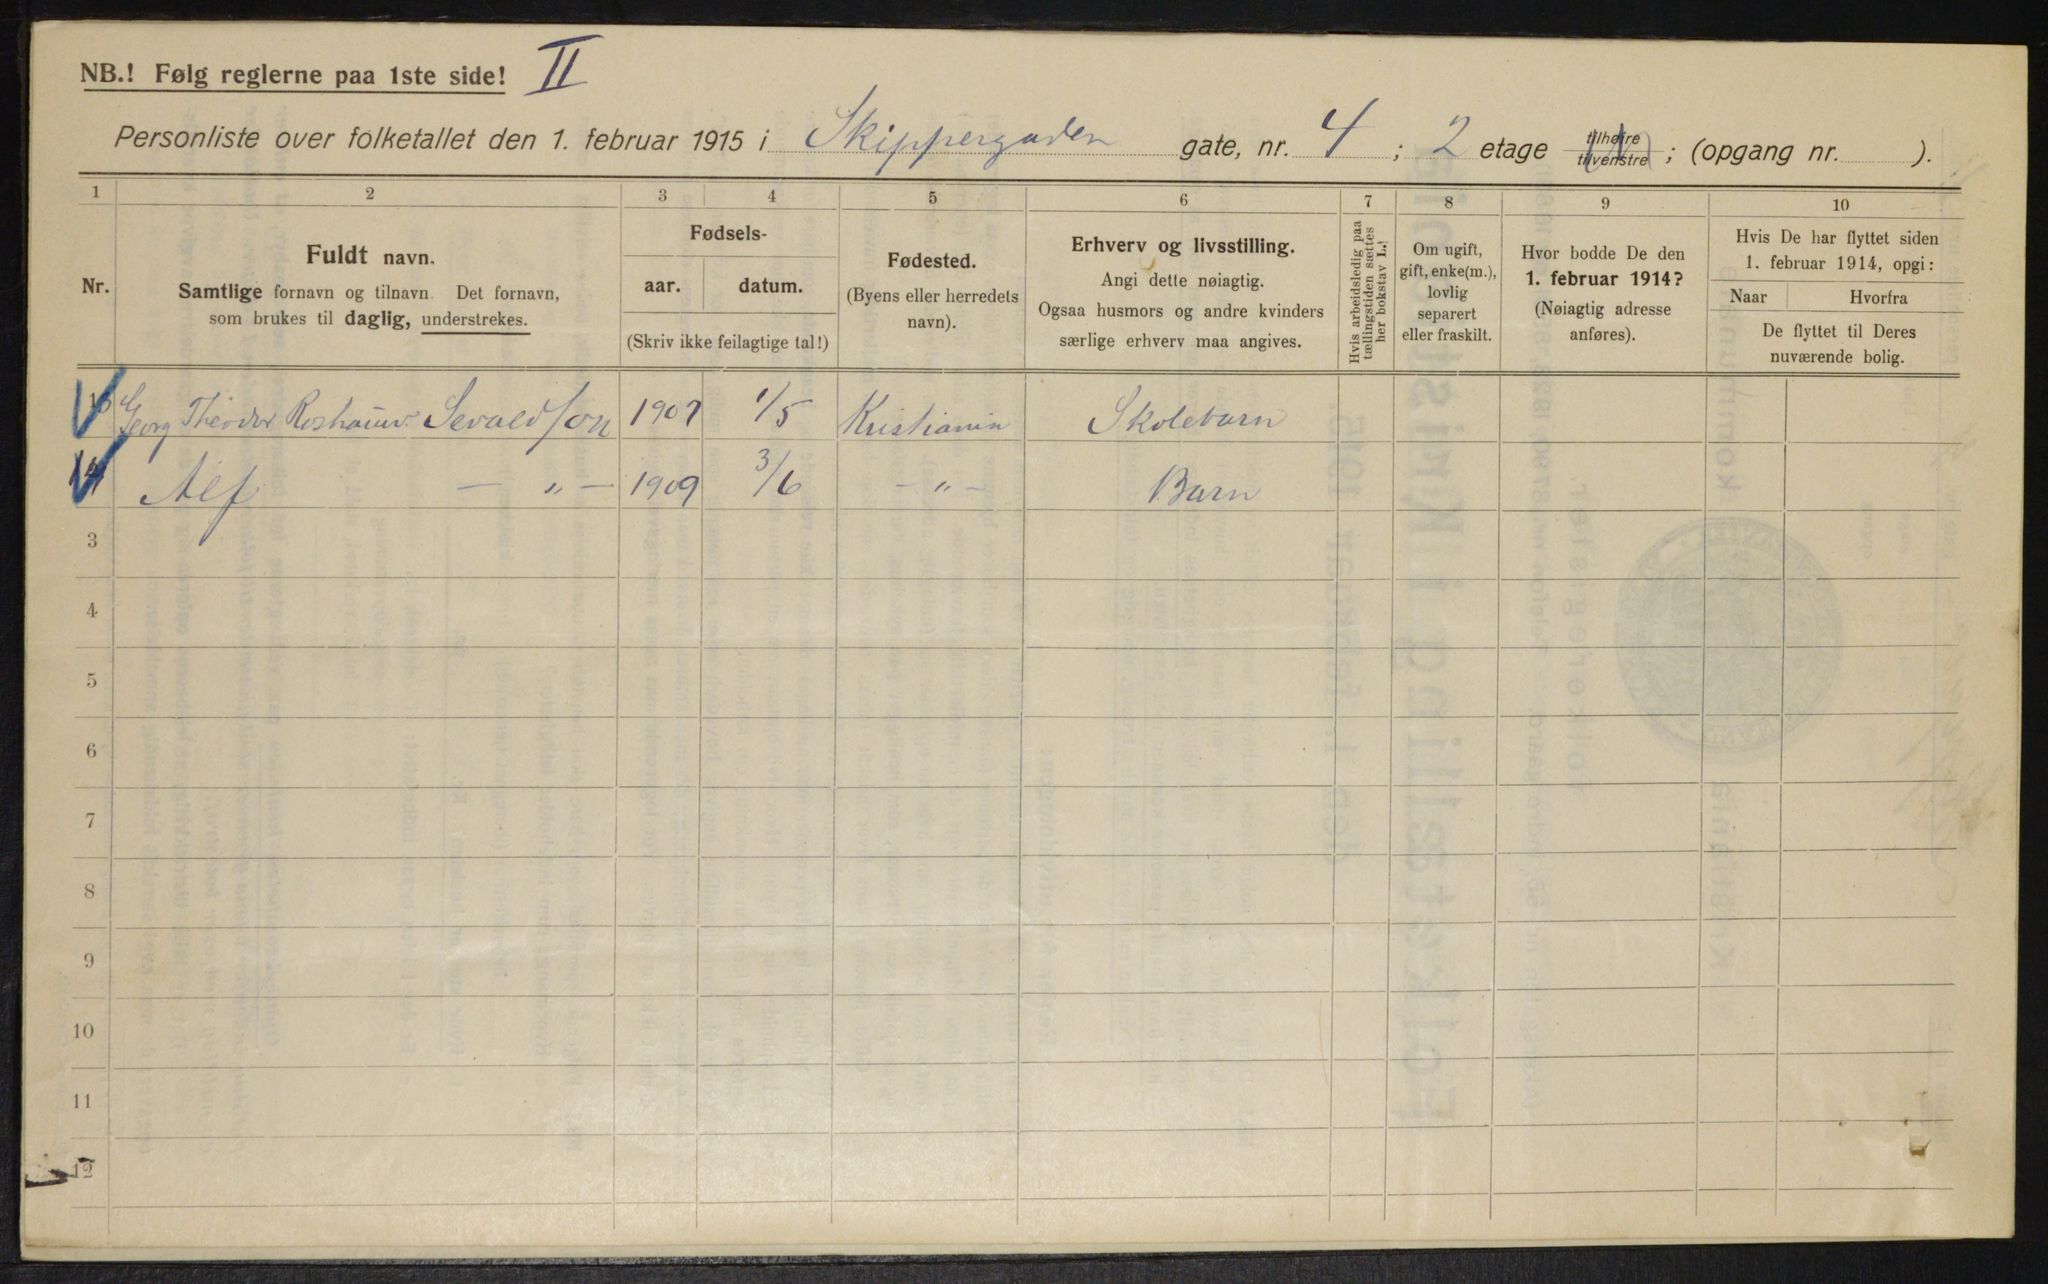 NB.! Følg reglerne paa 1ste side! II
Personliste over folketallet den 1. februar 1915 i Skippergaden gate, nr. 4 ; 2 etage tilhøire tilvenstre ; (opgang nr. ).
1 2 3 4 5 6 7 8 9 10
Nr.
Fuldt navn.
Samtlige fornavn og tilnavn. Det fornavn,
som brukes til daglig, understrekes.
Fødsels-
aar. datum.
(Skriv ikke feilagtige tal!)
Fødested.
(Byens eller herredets
navn).
Erhverv og livsstilling.
Angi dette nøiagtig.
Ogsaa husmors og andre kvinders
særlige erhverv maa angives.
Hvis arbeidsledig paa
tællingstiden sættes
her bokstav L.!
Om ugift,
gift, enke(m.),
lovlig
separert
eller fraskilt.
Hvor bodde De den
1. februar 1914?
(Nøiagtig adresse
anføres).
Hvis De har flyttet siden
1. februar 1914, opgi:
Naar Hvorfra
De flyttet til Deres
nuværende bolig.
Georg Theodor Sevaldson 1907 1/5 Kristiania Skolebarn
Alf — „ — 1909 3/6 — „ — Barn
3
4
5
6
7
8
9
10
11
12